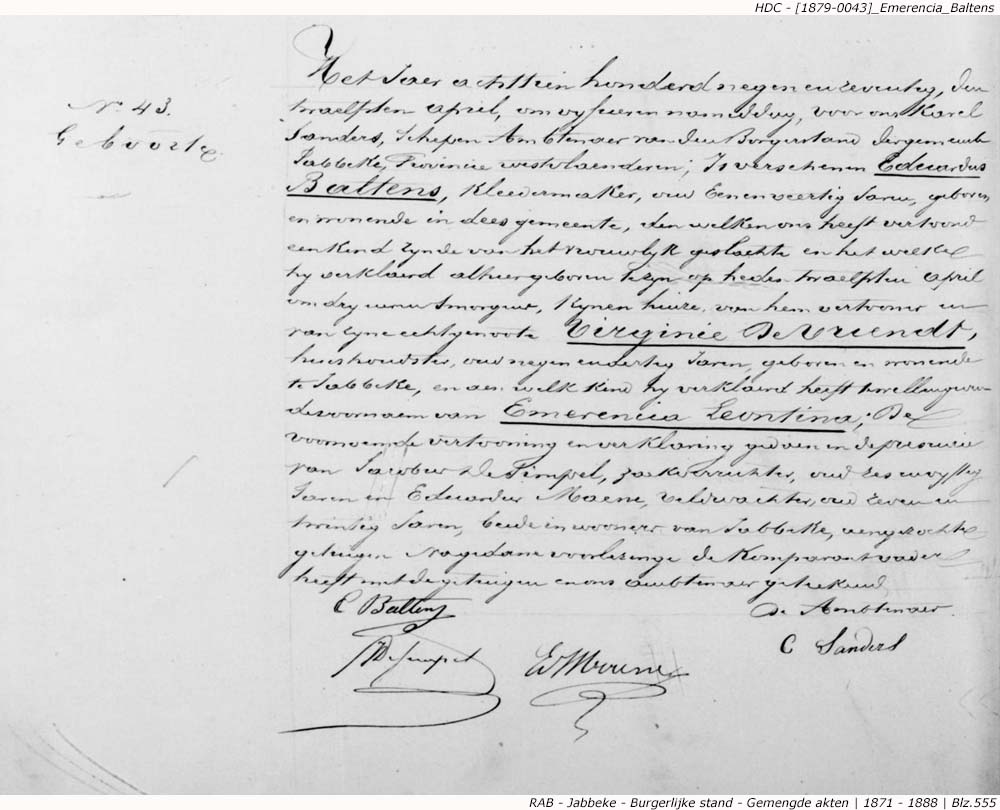 HDC - [1879-0043]_Emerencia_Baltens
Het Jaer achttien honderd negen en zeventig, den
N.r 43.
Geboorte
twaelfsten April, om vyf uren namiddag, voor ons Karel
Sanders, Schepen Ambtenaer van den Borgerstand der gemeente
Jabbeke, Provincie westvlaenderen; Is verschenen Eduardus
Baltens, Kleedermaker, oud Eenenveertig Jaren, geboren
en wonende in dees gemeente, den welken ons heeft vertoond
een Kind zynde van het vrouwlyk geslachte en het welke
hy verklaird alhier geboren te zyn op heden twaelfsten April
om dry uren smorgens, tzynen huize, van hem vertooner en
van zyne echtgenoote Virginie De Vriendt,
huishoudster, oud negen en dertig Jaren, geboren en wonende
te Jabbeke, en aen welk Kind hy verklaird heeft te willen geven
de voornaem van Emerencia Leontina; De
voornoemde vertooning en verklaring gedaen in de presencie
van Jacobus De Simpel, zaekverrichter, oud zes en vyftig
Jaren en Eduardus Maene, veldwachter, oud zeven en
twintig Jaren, beide inwooners van Jabbeke, aengezochte
getuigen Na gedane voorlezinge de Komparant vader
heeft met de getuigen en ons ambtenaer geteekend
E Baltens
De Ambtenaer.
C Sanders
J De Simpel
Ed Maene
RAB - Jabbeke - Burgerlijke stand - Gemengde akten | 1871 - 1888 | Blz.555